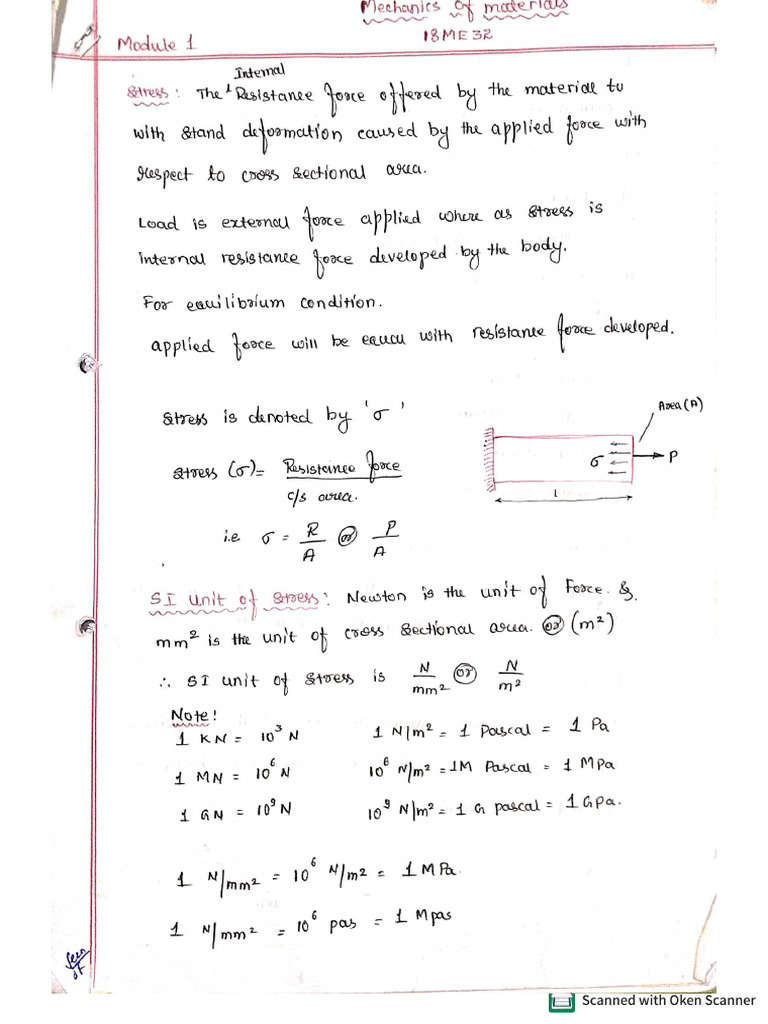 Mechanics of materials
18ME32
Module 1
Stress: The Internal Resistance force offered by the material to
with stand deformation caused by the applied force with
respect to cross sectional area.
Load is external force applied where as stress is
internal resistance force developed by the body.
For equilibrium condition.
applied force will be equal with resistance force developed.
Stress is denoted by 'σ'
Area (A)
σ
P
L
Stress (σ) = Resistance force / c/s area.
i.e σ = R/A or P/A
SI Unit of Stress: Newton is the unit of Force. &
mm² is the unit of cross sectional area. or (m²)
∴ SI unit of stress is N/mm² or N/m²
Note!
1 KN = 10³ N 1 N/m² = 1 Pascal = 1 Pa
1 MN = 10⁶ N 10⁶ N/m² = 1M Pascal = 1 MPa
1 GN = 10⁹ N 10⁹ N/m² = 1 G pascal = 1 GPa.
1 N/mm² = 10⁶ N/m² = 1 MPa.
1 N/mm² = 10⁶ pas = 1 Mpas
Scanned with Oken Scanner